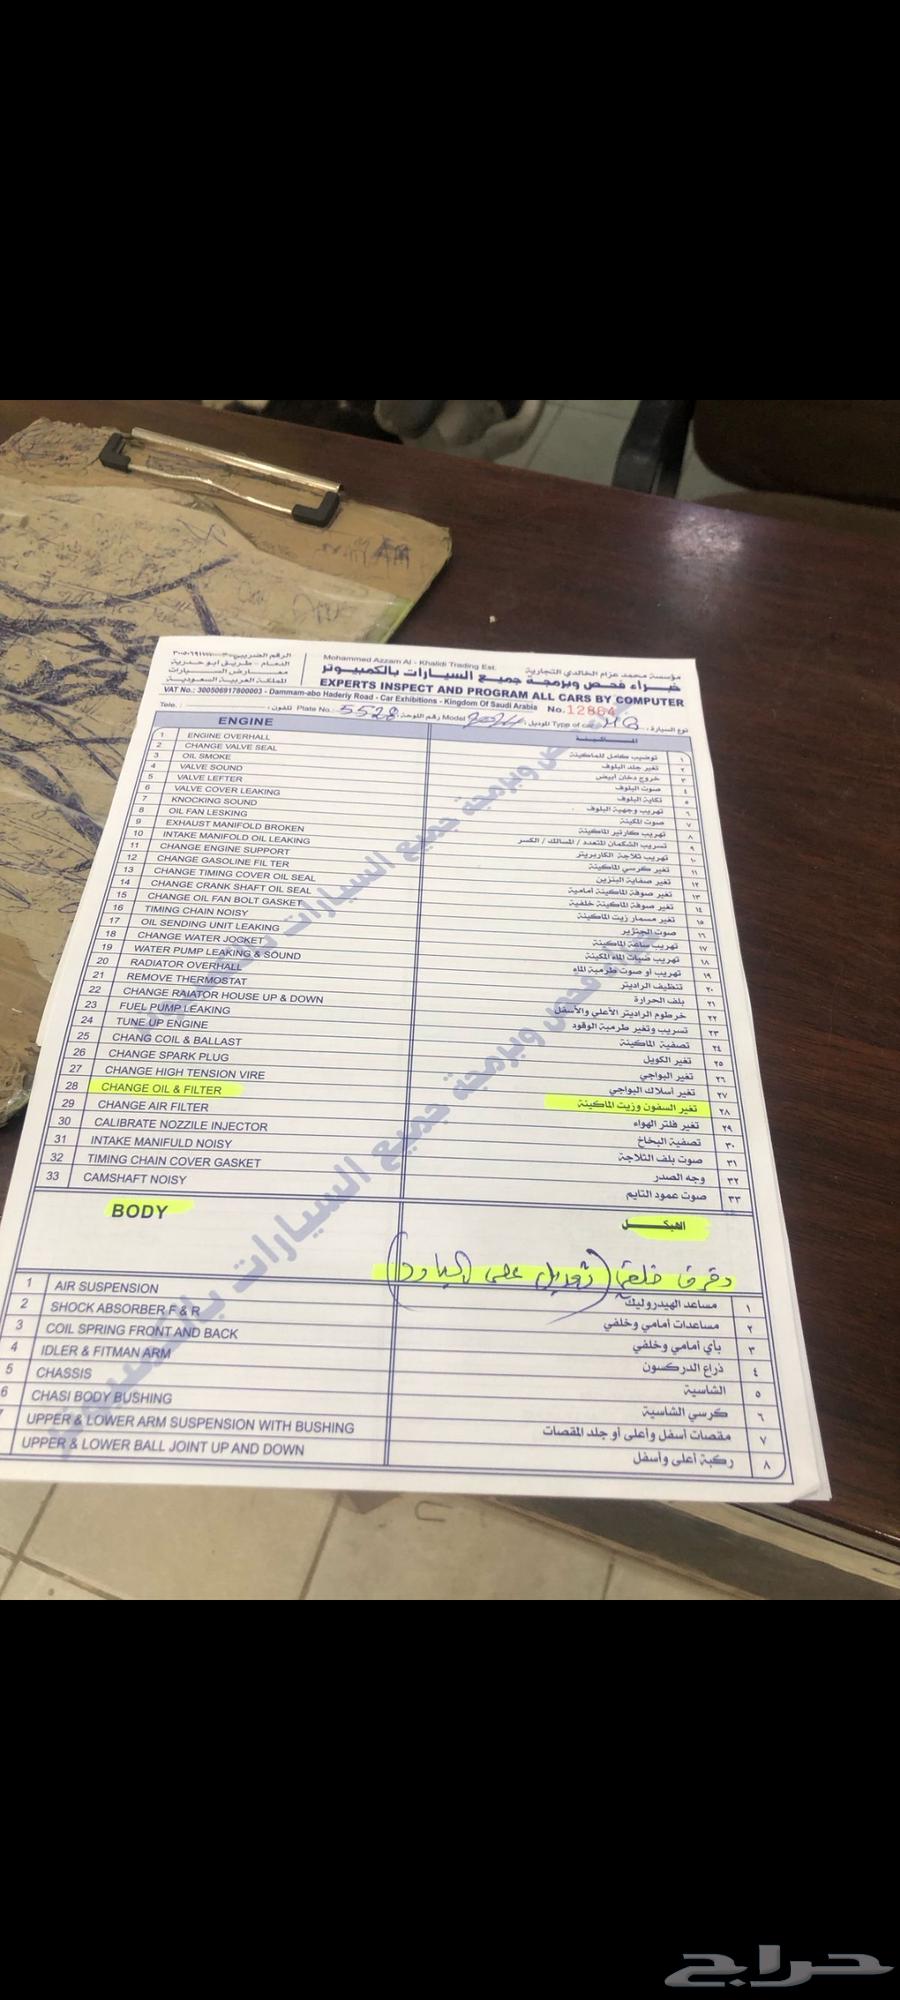 الرقم الضريبي:
الدمام - طريق ابو حدرية
معارض السيارات
المملكة العربية السعودية
Mohammed Azzam Al - Khalidi Trading Est.
مؤسسة محمد عزام الخالدي التجارية
خبراء فحص وبرمجة جميع السيارات بالكمبيوتر
EXPERTS INSPECT AND PROGRAM ALL CARS BY COMPUTER
VAT No.: 300506917800003 - Dammam-abo Haderiy Road - Car Exhibitions - Kingdom Of Saudi Arabia No. 12864
Tele. : تلفون: Plate No.: 5528 رقم اللوحة: Model 2024 الموديل: Type of car: MG نوع السيارة:
ENGINE الماكينة
1 ENGINE OVERHALL توضيب كامل للماكينة ١
2 CHANGE VALVE SEAL تغير جلد البلوف ٢
3 OIL SMOKE خروج دخان أبيض ٣
4 VALVE SOUND صوت البلوف ٤
5 VALVE LEFTER تكاية البلوف ٥
6 VALVE COVER LEAKING تهريب وجهية البلوف ٦
7 KNOCKING SOUND صوت المكينة ٧
8 OIL FAN LESKING تهريب كارتير الماكينة ٨
9 EXHAUST MANIFOLD BROKEN تسريب الشكمان المتعدد / المسالك / الكسر ٩
10 INTAKE MANIFOLD OIL LEAKING تهريب ثلاجة الكاربريتر ١٠
11 CHANGE ENGINE SUPPORT تغير كرسي الماكينة ١١
12 CHANGE GASOLINE FILTER تغير صفاية البنزين ١٢
13 CHANGE TIMING COVER OIL SEAL تغير صوفة الماكينة أمامية ١٣
14 CHANGE CRANK SHAFT OIL SEAL تغير صوفة الماكينة خلفية ١٤
15 CHANGE OIL FAN BOLT GASKET تغير مسمار زيت الماكينة ١٥
16 TIMING CHAIN NOISY صوت الجنزير ١٦
17 OIL SENDING UNIT LEAKING تهريب ساعة الماكينة ١٧
18 CHANGE WATER JOCKET تهريب ضبات الماء المكينة ١٨
19 WATER PUMP LEAKING & SOUND تهريب أو صوت طرمبة الماء ١٩
20 RADIATOR OVERHALL تنظيف الراديتر ٢٠
21 REMOVE THERMOSTAT بلف الحرارة ٢١
22 CHANGE RAIATOR HOUSE UP & DOWN خرطوم الراديتر الأعلى والأسفل ٢٢
23 FUEL PUMP LEAKING تسريب وتغير طرمبة الوقود ٢٣
24 TUNE UP ENGINE تصفية الماكينة ٢٤
25 CHANG COIL & BALLAST تغير الكويل ٢٥
26 CHANGE SPARK PLUG تغير البواجي ٢٦
27 CHANGE HIGH TENSION VIRE تغير أسلاك البواجي ٢٧
28 CHANGE OIL & FILTER تغير السفون وزيت الماكينة ٢٨
29 CHANGE AIR FILTER تغير فلتر الهواء ٢٩
30 CALIBRATE NOZZILE INJECTOR تصفية البخاخ ٣٠
31 INTAKE MANIFULD NOISY صوت بلف الثلاجة ٣١
32 TIMING CHAIN COVER GASKET وجه الصدر ٣٢
33 CAMSHAFT NOISY صوت عمود التايم ٣٣
BODY الهيكل
خلفي (تعديل على البارد)
1 AIR SUSPENSION مساعد الهيدروليك ١
2 SHOCK ABSORBER F & R مساعدات أمامي وخلفي ٢
3 COIL SPRING FRONT AND BACK يأي أمامي وخلفي ٣
4 IDLER & FITMAN ARM ذراع الدركسون ٤
5 CHASSIS الشاسية ٥
6 CHASI BODY BUSHING كرسي الشاسية ٦
UPPER & LOWER ARM SUSPENSION WITH BUSHING مقصات أسفل وأعلى أو جلد المقصات ٧
UPPER & LOWER BALL JOINT UP AND DOWN ركبة أعلى وأسفل ٨
خبراء فحص وبرمجة جميع السيارات بالكمبيوتر
حراج